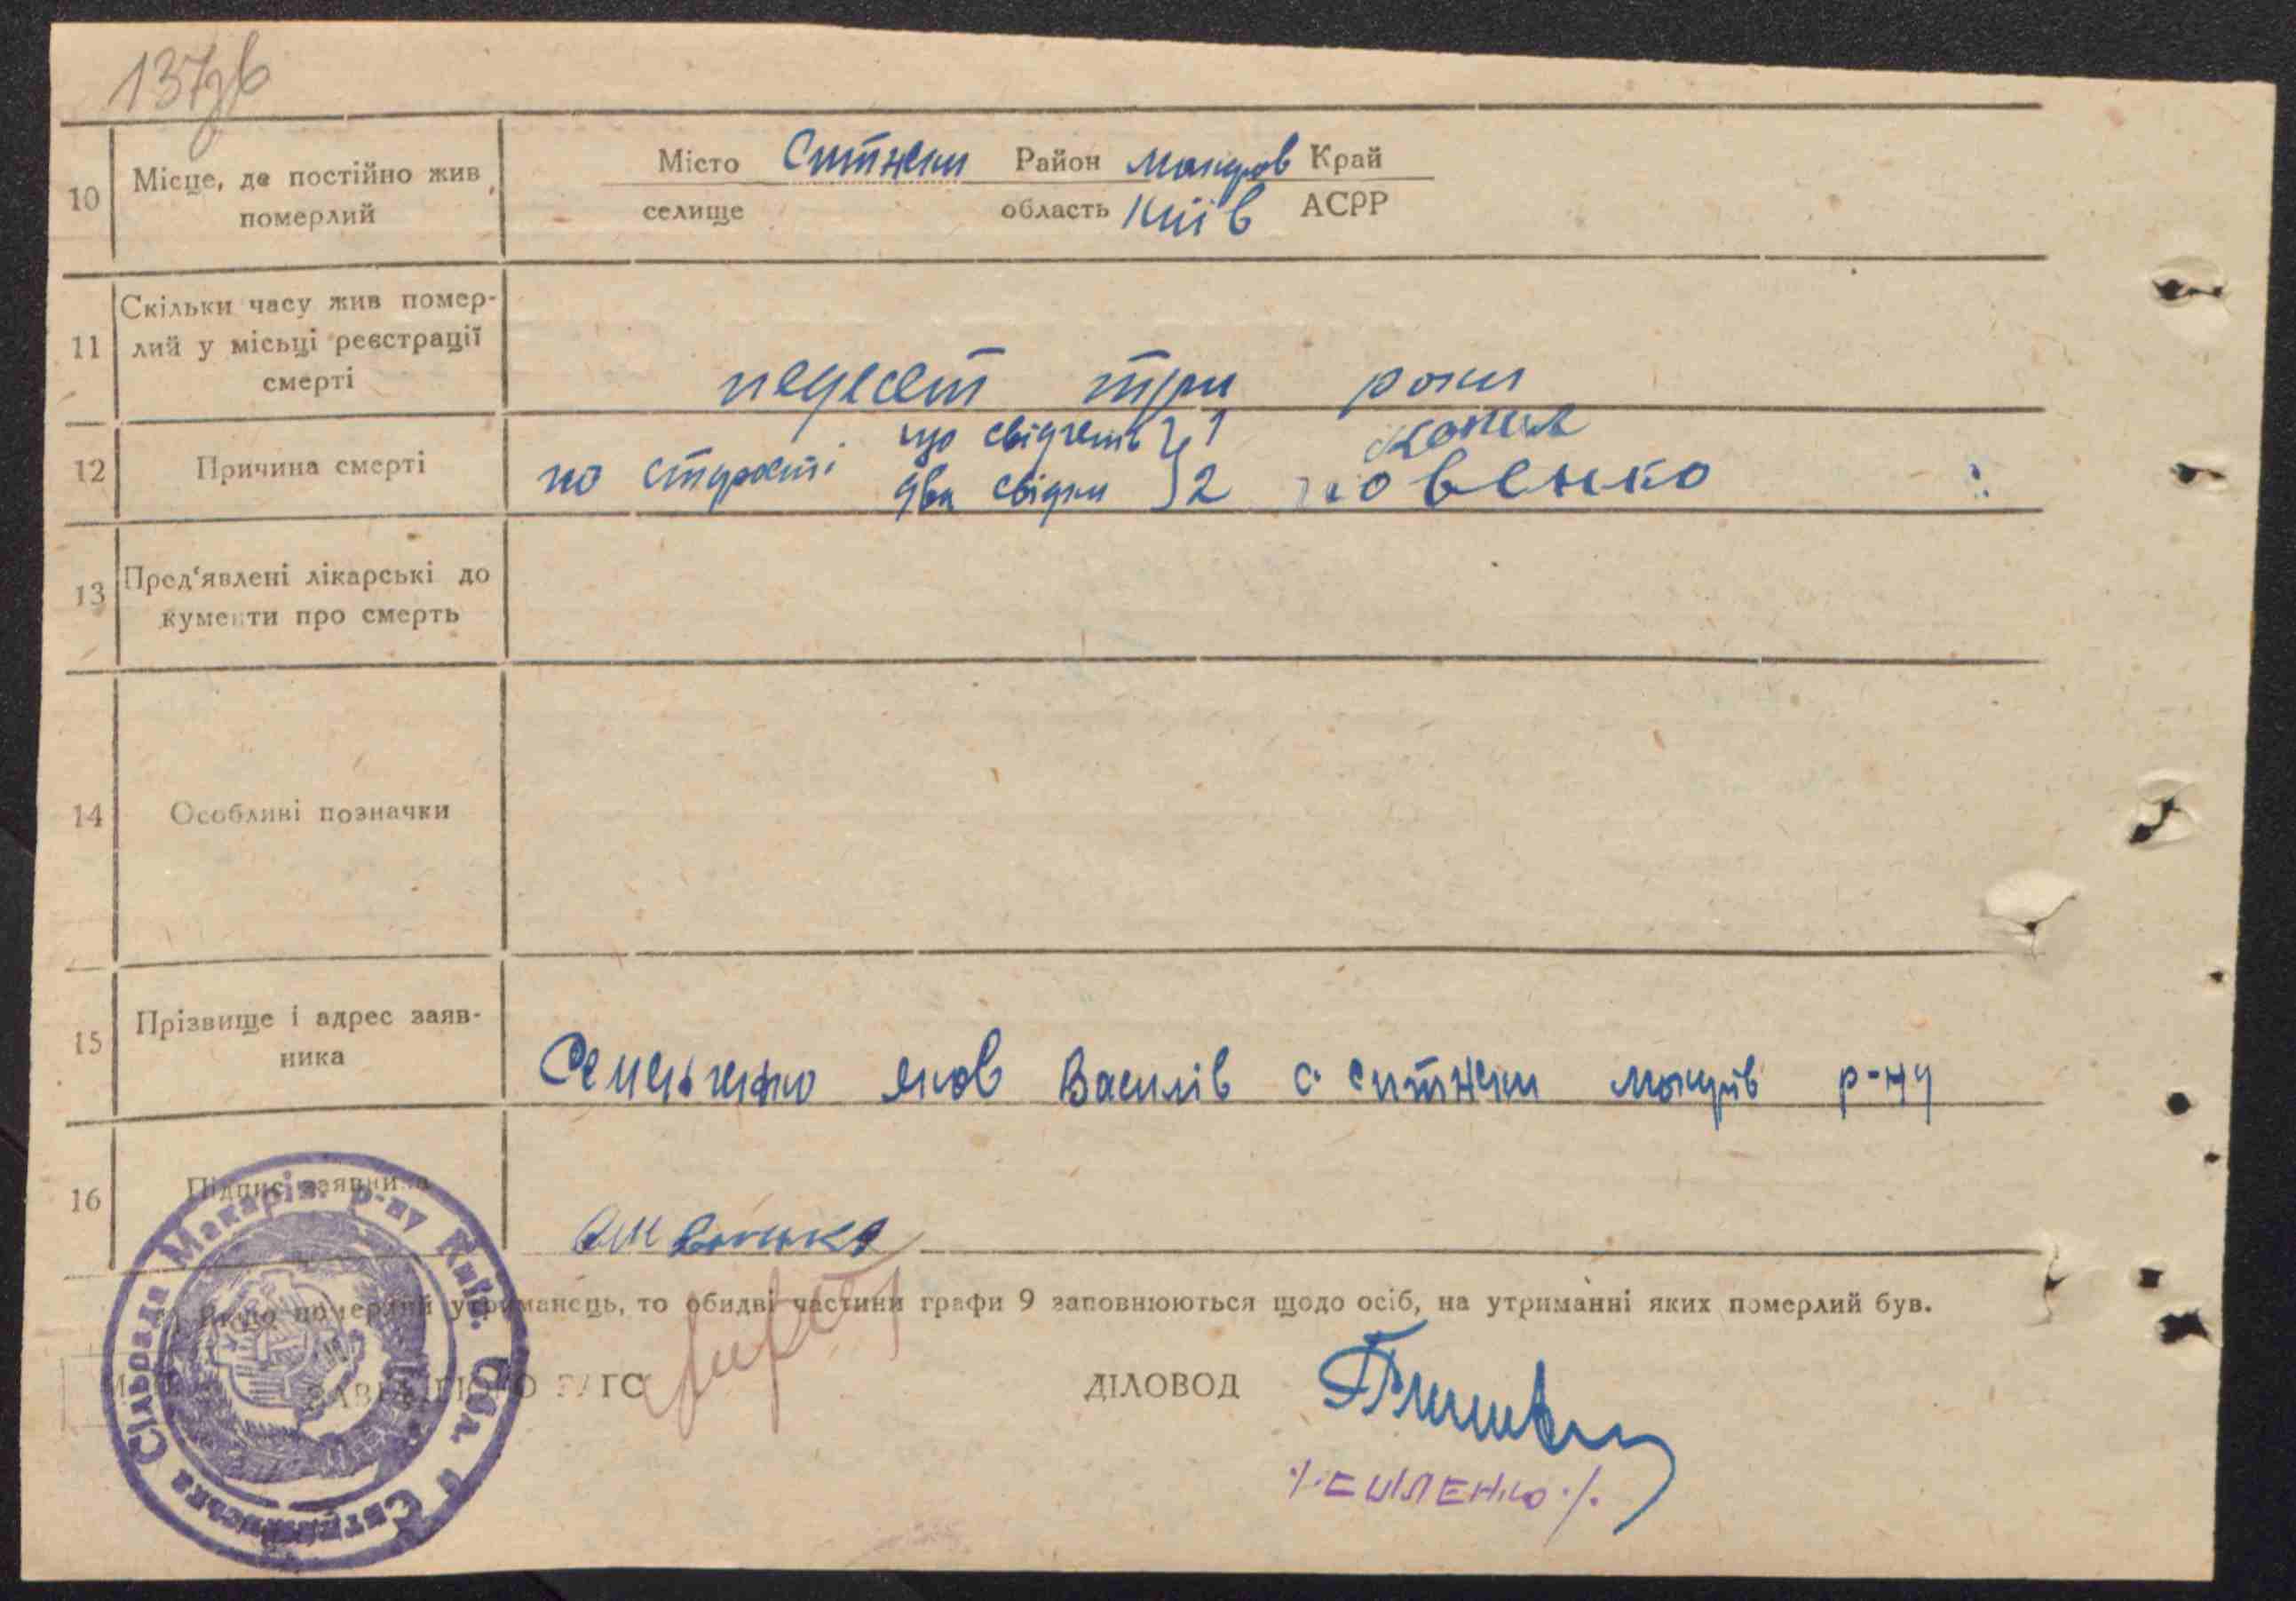 137зв
10 Місце, де постійно жив померлий
Місто Ситняки Район Макаров Край
селище область Київ АСРР
11 Скільки часу жив помер-
лий у місьці реєстрації
смерті
педесят три роки
12 Причина смерті
по старості що свідчать 1
два свідки 2
13 Пред'явлені лікарські до
кументи про смерть
14 Особливі позначки
15 Прізвище і адрес заяв-
ника
Семенченко Яков Василів с ситняки макарів р-ну
16 Підпис заявника
*) Якщо померлий утриманець, то обидві частини графи 9 заповнюються щодо осіб, на утриманні яких померлий був.
ЗАВІДАТЕЛЬ БЮРО ЗАГС
ДІЛОВОД
Сільрада Макарів. р-ну Київ. Обл.